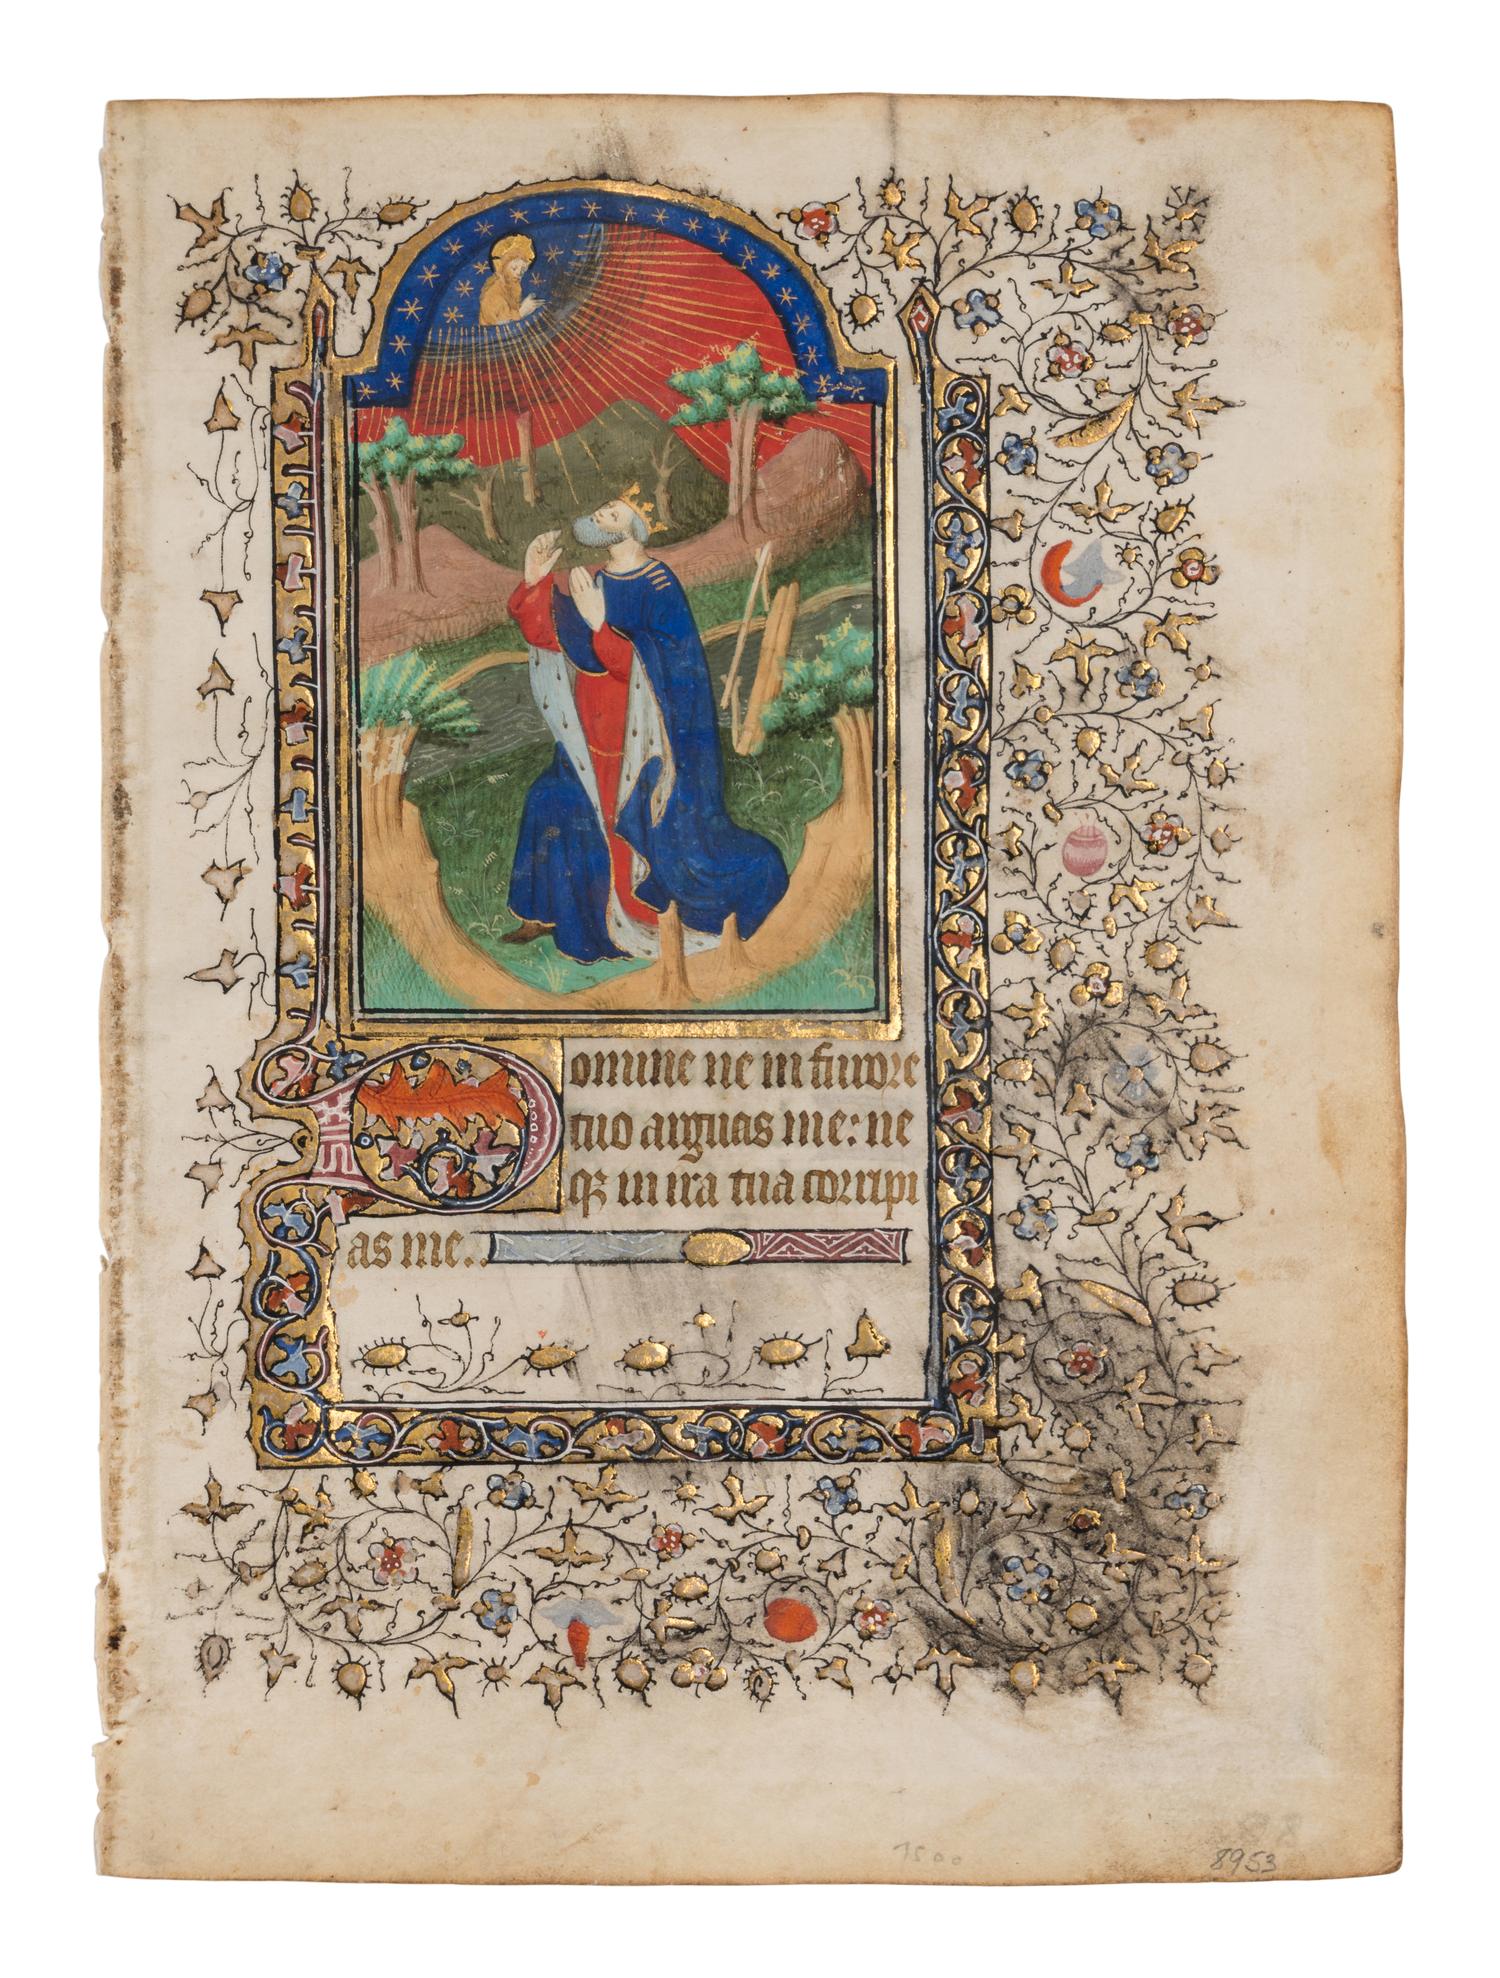 Domine ne in furore
tuo arguas me: ne
qꝫ in ira tua corripi
as me..
1500
8953